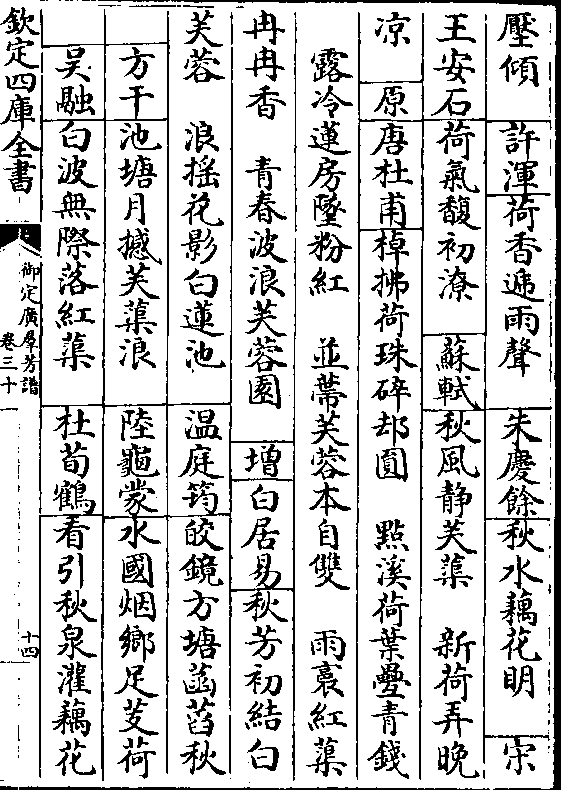 壓傾　許渾荷香遞雨聲　朱慶餘秋水藕花明　宋
王安石荷氣馥初潦　蘇軾秋風静芙蕖　新荷弄晚
凉　原唐杜甫棹拂荷珠碎却圓　點溪荷葉疊青錢
露冷蓮房墜粉紅　並蔕芙蓉本自雙　雨裛紅蕖
冉冉香　青春波浪芙蓉園　增白居易秋芳初結白
芙蓉　浪揺花影白蓮池　温庭筠皎鏡方塘菡萏秋
方干池塘月撼芙蕖浪　陸龜蒙水國烟鄉足芰荷
吴融白波無際落紅蕖　杜荀鶴看引秋泉灌藕花
欽定四庫全書
御定廣羣芳譜
卷三十
十四